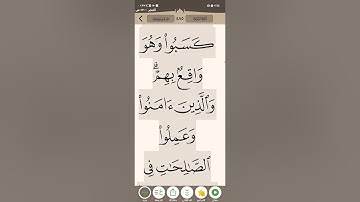 كَسَبُوا۟ وَهُوَ
وَاقِعٌۢ بِهِمْ ۗ
وَٱلَّذِينَ ءَامَنُوا۟
وَعَمِلُوا۟
ٱلصَّـٰلِحَـٰتِ فِى